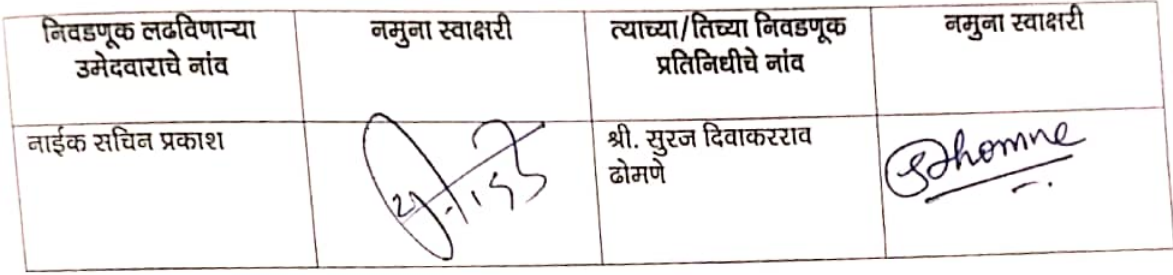 निवडणूक लढविणाऱ्या
उमेदवाराचे नांव
नमुना स्वाक्षरी
त्याच्या/तिच्या निवडणूक
प्रतिनिधीचे नांव
नमुना स्वाक्षरी
नाईक सचिन प्रकाश
श्री. सुरज दिवाकरराव
ढोमणे
Dhomne